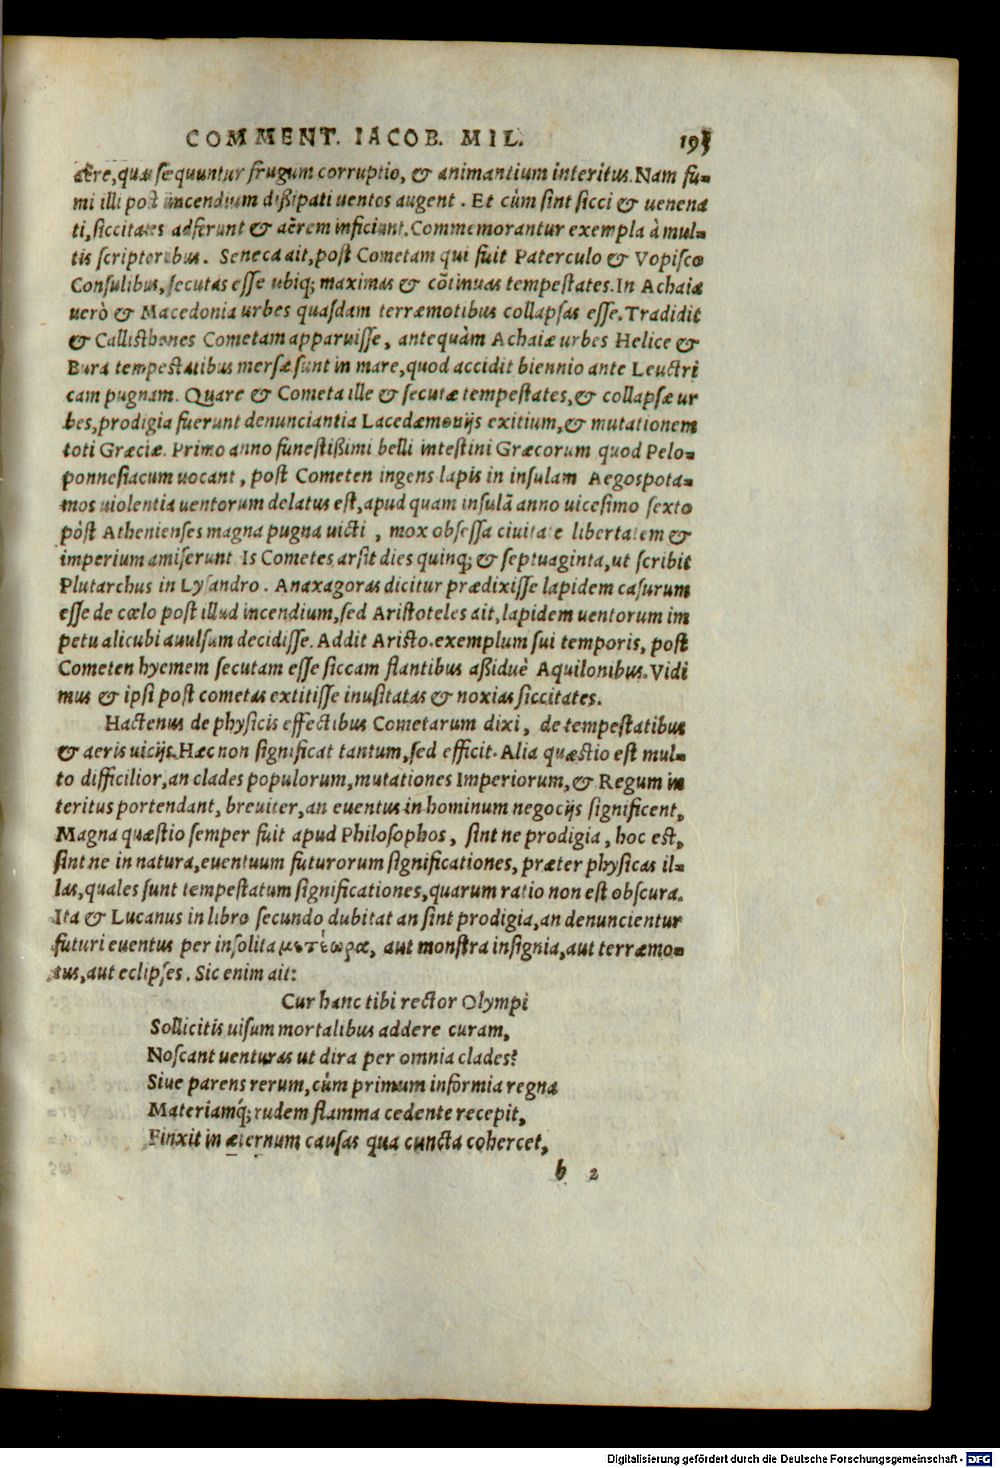 COMMENT. IACOB. MIL. 195
aëre, quas sequuntur frugum corruptio, & animantium interitus. Nam fu-
mi illi post incendium dißipati uentos augent. Et cùm sint sicci & uenena
ti, siccitates adferunt & aërem inficiunt. Commemorantur exempla à mul-
tis scriptoribus. Seneca ait, post Cometam qui fuit Paterculo & Vopisco
Consulibus, secutas esse ubiq; maximas & cõtinuas tempestates. In Achaia
uerò & Macedonia urbes quasdam terræmotibus collapsas esse. Tradidit
& Callisthenes Cometam apparuisse, antequàm Achaiæ urbes Helice &
Bura tempestatibus mersæ sunt in mare, quod accidit biennio ante Leuctri
cam pugnam. Quare & Cometa ille & secutæ tempestates, & collapsæ ur
bes, prodigia fuerunt denunciantia Lacedæmonijs exitium, & mutationem
toti Græciæ. Primo anno funestißimi belli intestini Græcorum quod Pelo-
ponnesiacum uocant, post Cometen ingens lapis in insulam Aegospota-
mos uiolentia uentorum delatus est, apud quam insulã anno uicesimo sexto
pòst Athenienses magna pugna uicti, mox obsessa ciuitate libertatem &
imperium amiserunt Is Cometes arsit dies quinq; & septuaginta, ut scribit
Plutarchus in Lysandro. Anaxagoras dicitur prædixisse lapidem casurum
esse de cœlo post illud incendium, sed Aristoteles ait, lapidem uentorum im
petu alicubi auulsum decidisse. Addit Aristo. exemplum sui temporis, post
Cometen hyemem secutam esse siccam flantibus aßiduè Aquilonibus. Vidi
mus & ipsi post cometas extitisse inusitatas & noxias siccitates.
Hactenus de physicis effectibus Cometarum dixi, de tempestatibus
& aeris uicijs. Hæc non significat tantum, sed efficit. Alia quæstio est mul-
to difficilior, an clades populorum, mutationes Imperiorum, & Regum in
teritus portendant, breuiter, an euentus in hominum negocijs significent,
Magna quæstio semper fuit apud Philosophos, sint ne prodigia, hoc est,
sint ne in natura, euentuum futurorum significationes, præter physicas il-
las, quales sunt tempestatum significationes, quarum ratio non est obscura.
Ita & Lucanus in libro secundo dubitat an sint prodigia, an denuncientur
futuri euentus per insolita μετέωρα, aut monstra insignia, aut terræmo-
tus, aut eclipses. Sic enim ait:
Cur hanc tibi rector Olympi
Sollicitis uisum mortalibus addere curam,
Noscant uenturas ut dira per omnia clades?
Siue parens rerum, cùm primum informia regna
Materiamq́; rudem flamma cedente recepit,
Finxit in æternum causas qua cuncta cohercet,
b 2
Digitalisierung gefördert durch die Deutsche Forschungsgemeinschaft - DFG